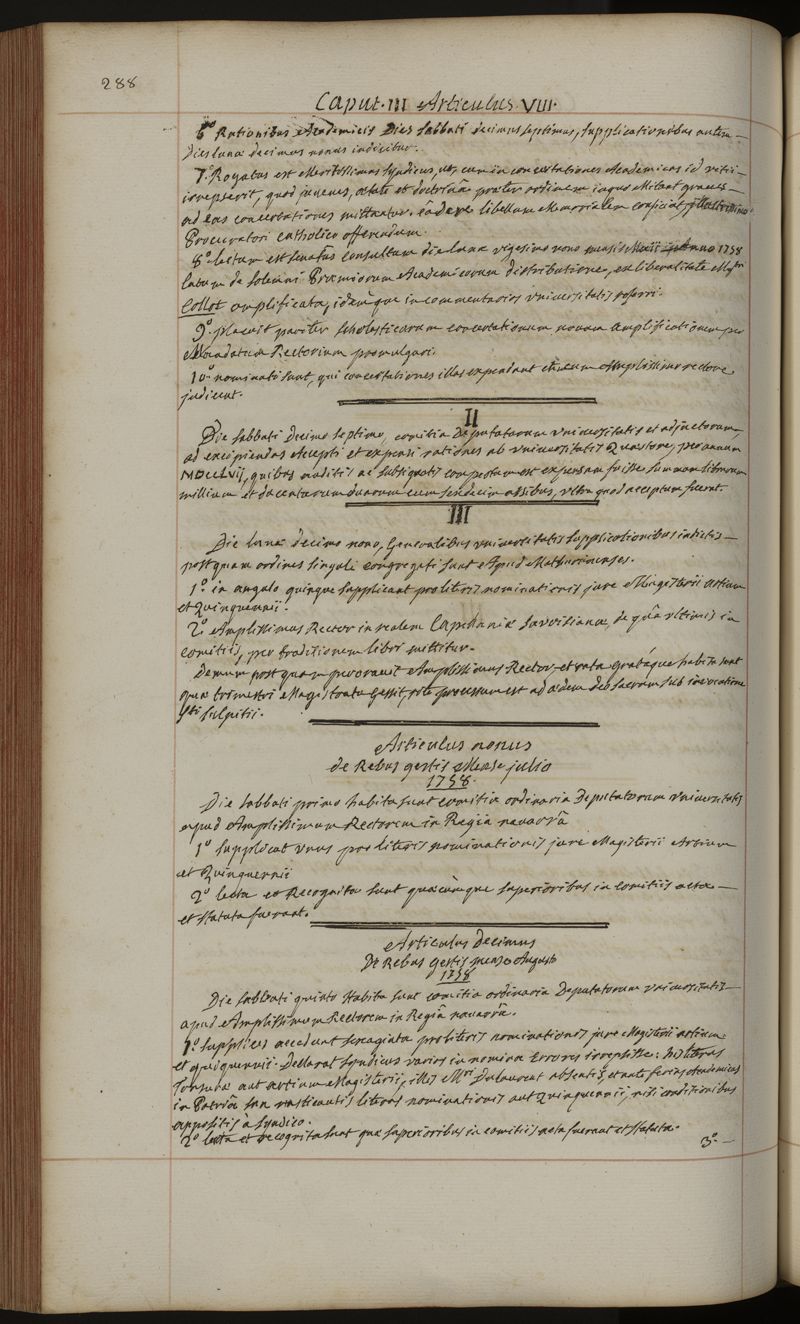 288
Caput. III Articulus VIII.
6° Rationibus Academicis Dies Sabbati decimus septimus, supplicationibus autem
Dies lunæ decimus nonus indicitur.
7.° Rogatus est Meritissimus Syndicus, ut, cum in concertationes Academicas id vitii
irrepserit, quod juvenes, ætate et doctrinâ præter ordinem graves
ad eas concertationes mittantur, eâ de re libellum Memorialem conficiat, illustrissimo
Procuratori catholico offerendum.
8.° lectum est senatûs consultum die lunæ vigesimo nono mensis Maii Anno 1758
latum de solemni Præmiorum Academicorum distributione, ex liberalitate Mgri
Collot amplificata, idemque in commentarios universitatis referri.
9.° placuit pariter scholasticarum concertationum novam amplificationem per
Mandatum Rectorium promulgari.
10.° nominati sunt, qui concertationes illas expendant et cum Amplissimo rectore
judicent.
II
Die sabbati decimo septimo, comitia Deputatorum universitatis et adjunctorum,
ad excipiendas accepti et expensi rationes ab universitatis Quæstore, per annum
MDCCLVII, quibus auditis ac subsignatis compertum est expensam fuisse summam librarum
millium et ducentarum duarum cum sexdecim assibus, ultra quod acceptum fuerat.
III
Die lunæ decimo nono, Generalibus universitatis supplicationibus indictis
postquam ordines singuli congregati sunt Apud Mathurinenses.
1.° in angulo quinque supplicant pro literis nominationis jure Magisterii Artium
et Quinquennii.
2.° Amplissimus Rector in realem Capellaniæ Savoisianæ, de quâ ultimis in
comitiis, per traditionem libri mittitur.
Demum postquam peroravit Amplissimus Rector, et rata grataque habita sunt
quæ trimestri Magistratu gessit, rite processum est ad ædem deo sacram sub invocatione
Sti Sulpitii.
Articulus nonus
de Rebus gestis Mense julio
1758.
Die Sabbati primo habita sunt comitia ordinaria Deputatorum universitatis
apud Amplissimum Rectorem in Regiâ navarrâ
1° supplicat unus pro literis nominationis jure Magisterii Artium
et Quinquennii
2° lecta et Recognita sunt quæcumque superioribus in comitiis acta
et statuta fuerant.
Articulus decimus
De Rebus gestis mense Augusto
1758
Die Sabbati quinto Habita sunt comitia ordinaria Deputatorum universitatis
apud Amplissimum Rectorem in Regiâ navarrâ.
1.° supplices accedunt sexaginta pro literis nominationis jure Magisterii artium
et quinquennii. Declarat syndicus varios in nomina Errores irrepsisse; his literas
Tonsuræ aut artium Magisterii, illis Mri Dulaurent absentis, et ante ferias Academicas
in Patriâ suâ rusticantis literas nominationis aut Quinquennii, nisi conditionibus
appositis à Syndico.
2° lecta et recognita sunt quæ superioribus in comitiis acta fuerant et statuta.
3.°